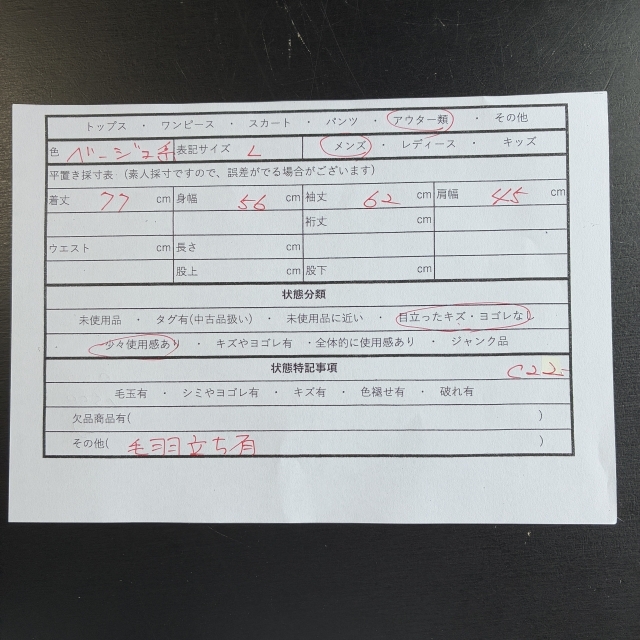 トップス ・ ワンピース ・ スカート ・ パンツ ・ アウター類 ・ その他
色 ベージュ系 表記サイズ L メンズ ・ レディース ・ キッズ
平置き採寸表 (素人採寸ですので、誤差がでる場合がございます)
着丈 77 cm 身幅 56 cm 袖丈 62 cm 肩幅 45 cm
裄丈 cm
ウエスト cm 長さ cm
股上 cm 股下 cm
状態分類
未使用品 ・ タグ有(中古品扱い) ・ 未使用品に近い ・ 目立ったキズ・ヨゴレなし
少々使用感あり ・ キズやヨゴレ有 ・全体的に使用感あり ・ ジャンク品
状態特記事項 C22
毛玉有 ・ シミやヨゴレ有 ・ キズ有 ・ 色褪せ有 ・ 破れ有
欠品商品有( )
その他( 毛羽立ち有 )